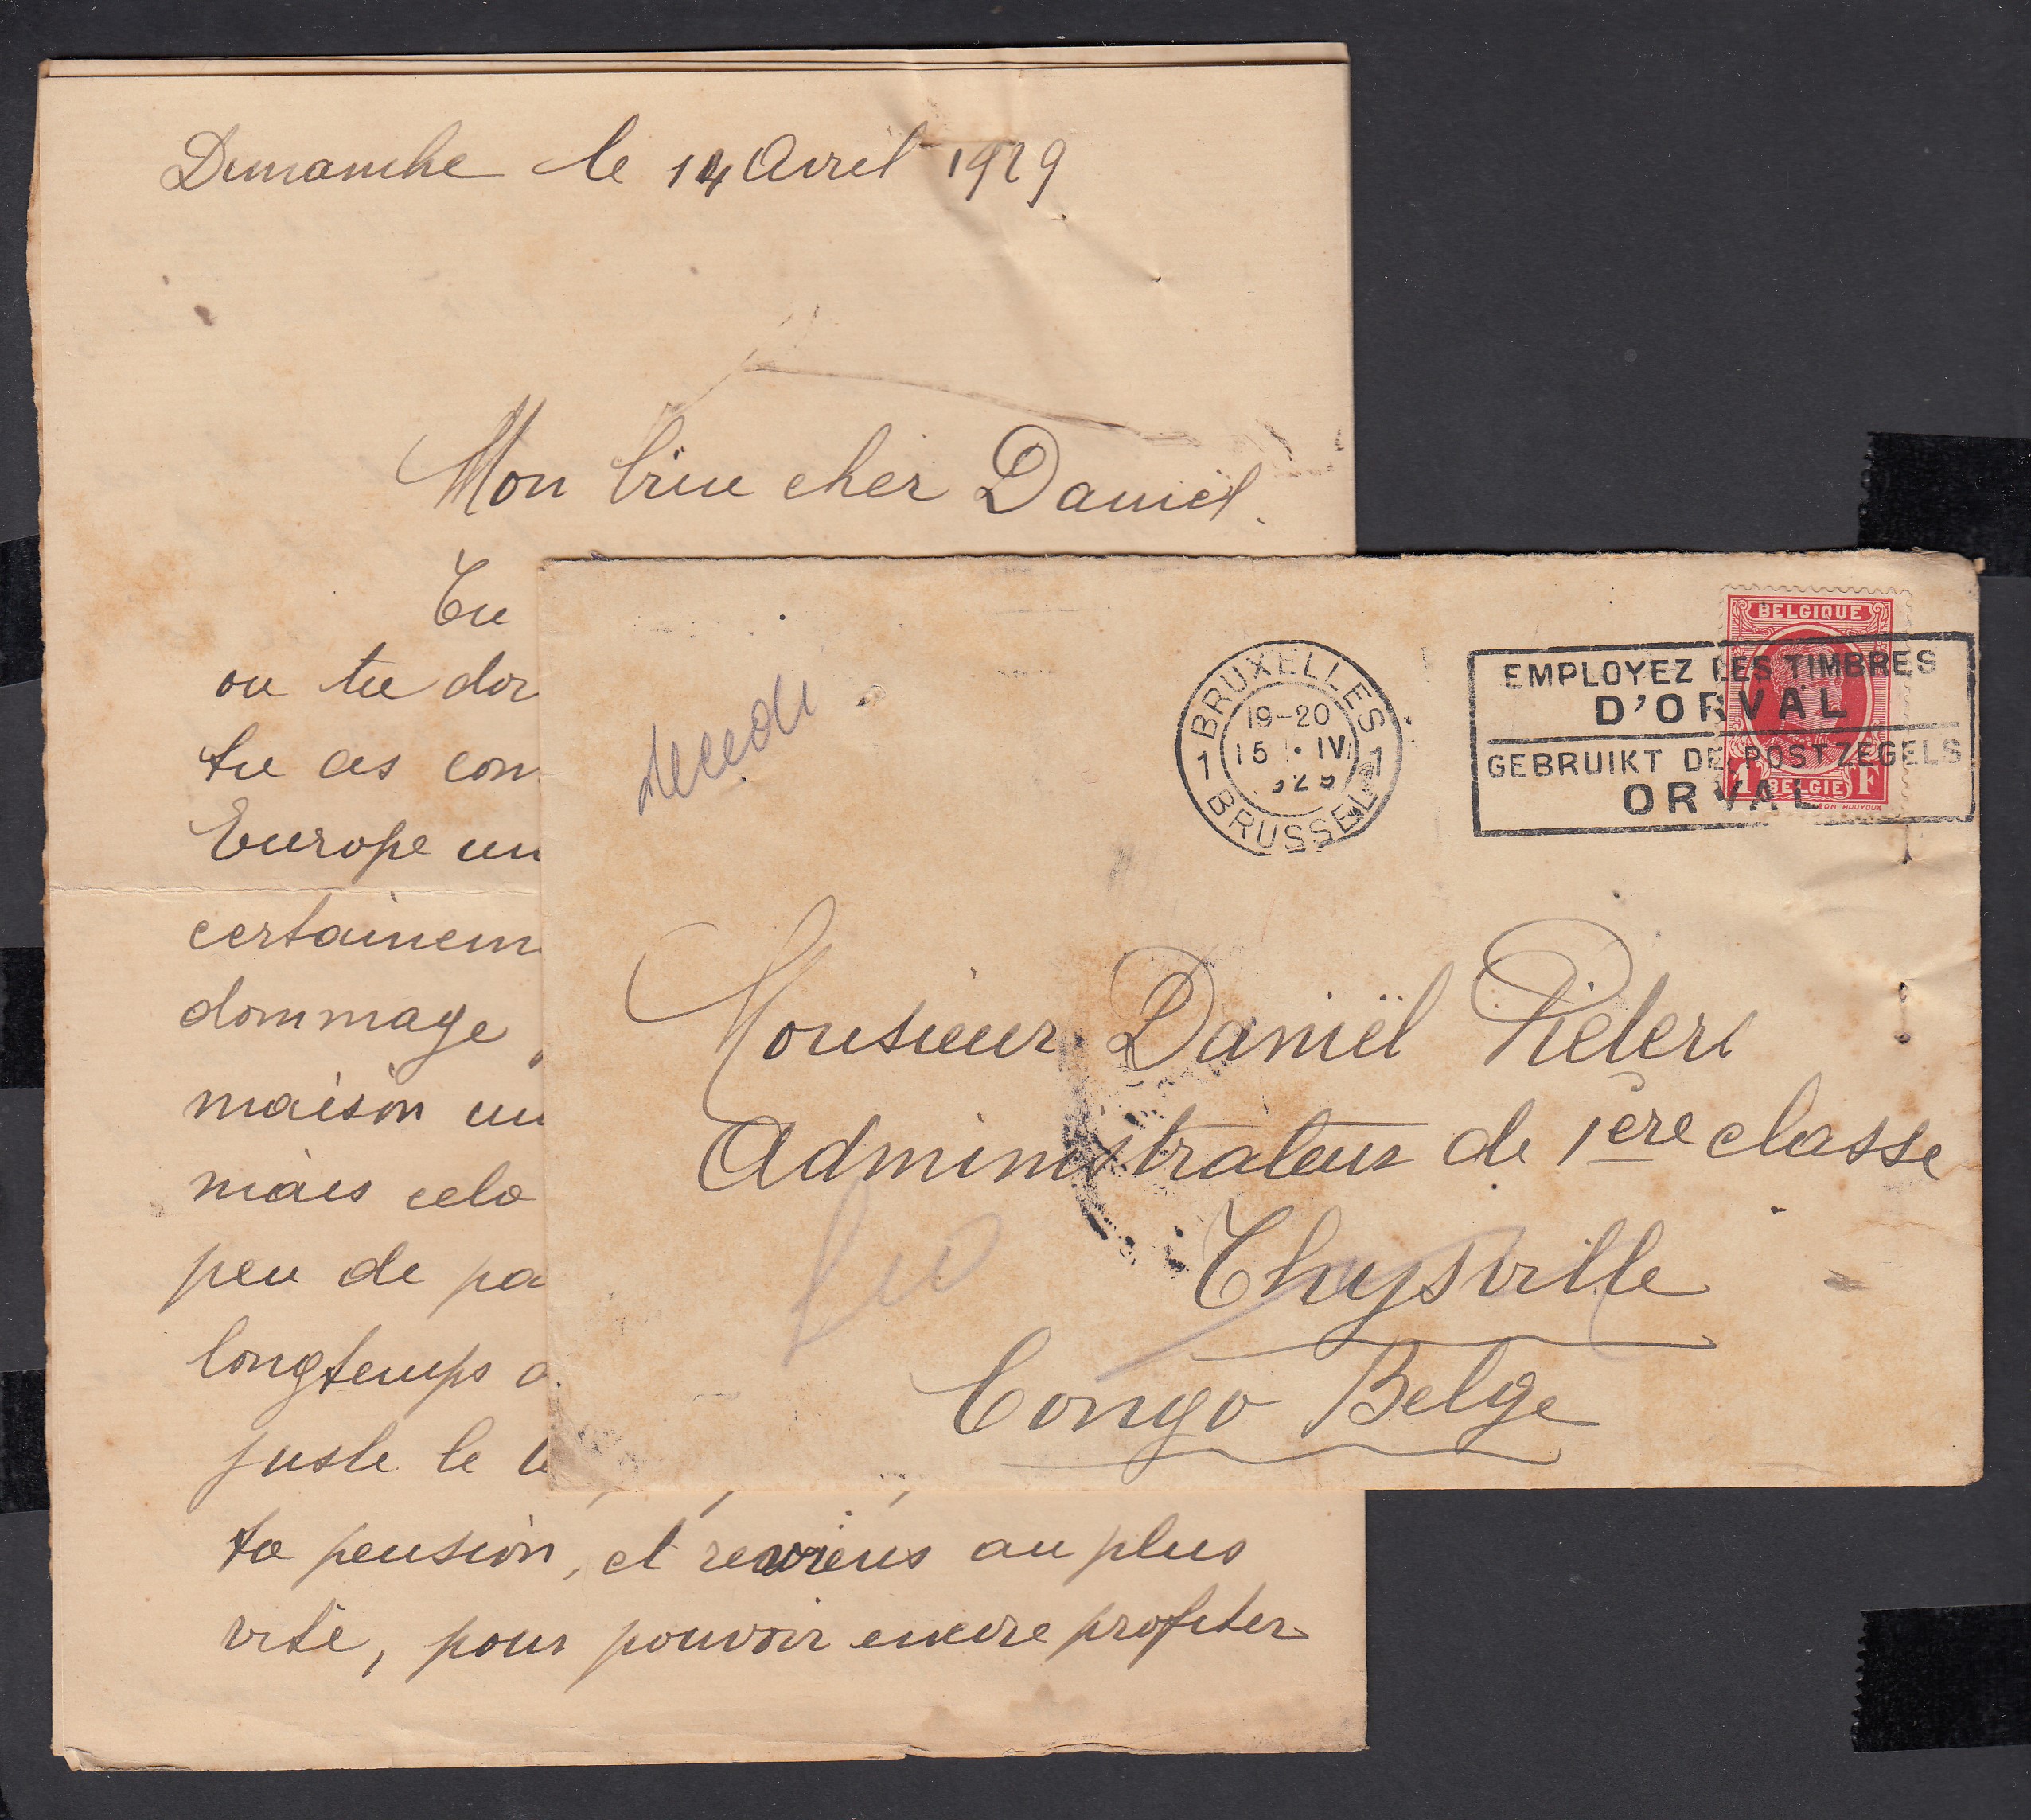 Dimanche le 14 Avril 1929
Mon bien cher Daniel.
Tu
ou tu dor
tu as com
Europe un
certainem
dommage
maison un
mais cela
peu de pa
longtemps a
juste le te
ta pension, et reviens au plus
vite, pour pouvoir encore profiter
BRUXELLES
1 19-20 1
15 IV
1929
BRUSSEL
EMPLOYEZ LES TIMBRES
D'ORVAL
GEBRUIKT DE POSTZEGELS
ORVAL
BELGIQUE
1 BELGIE F
Monsieur Daniël Pieters
Administrateur de 1ère classe
Léo
Thysville
Congo Belge